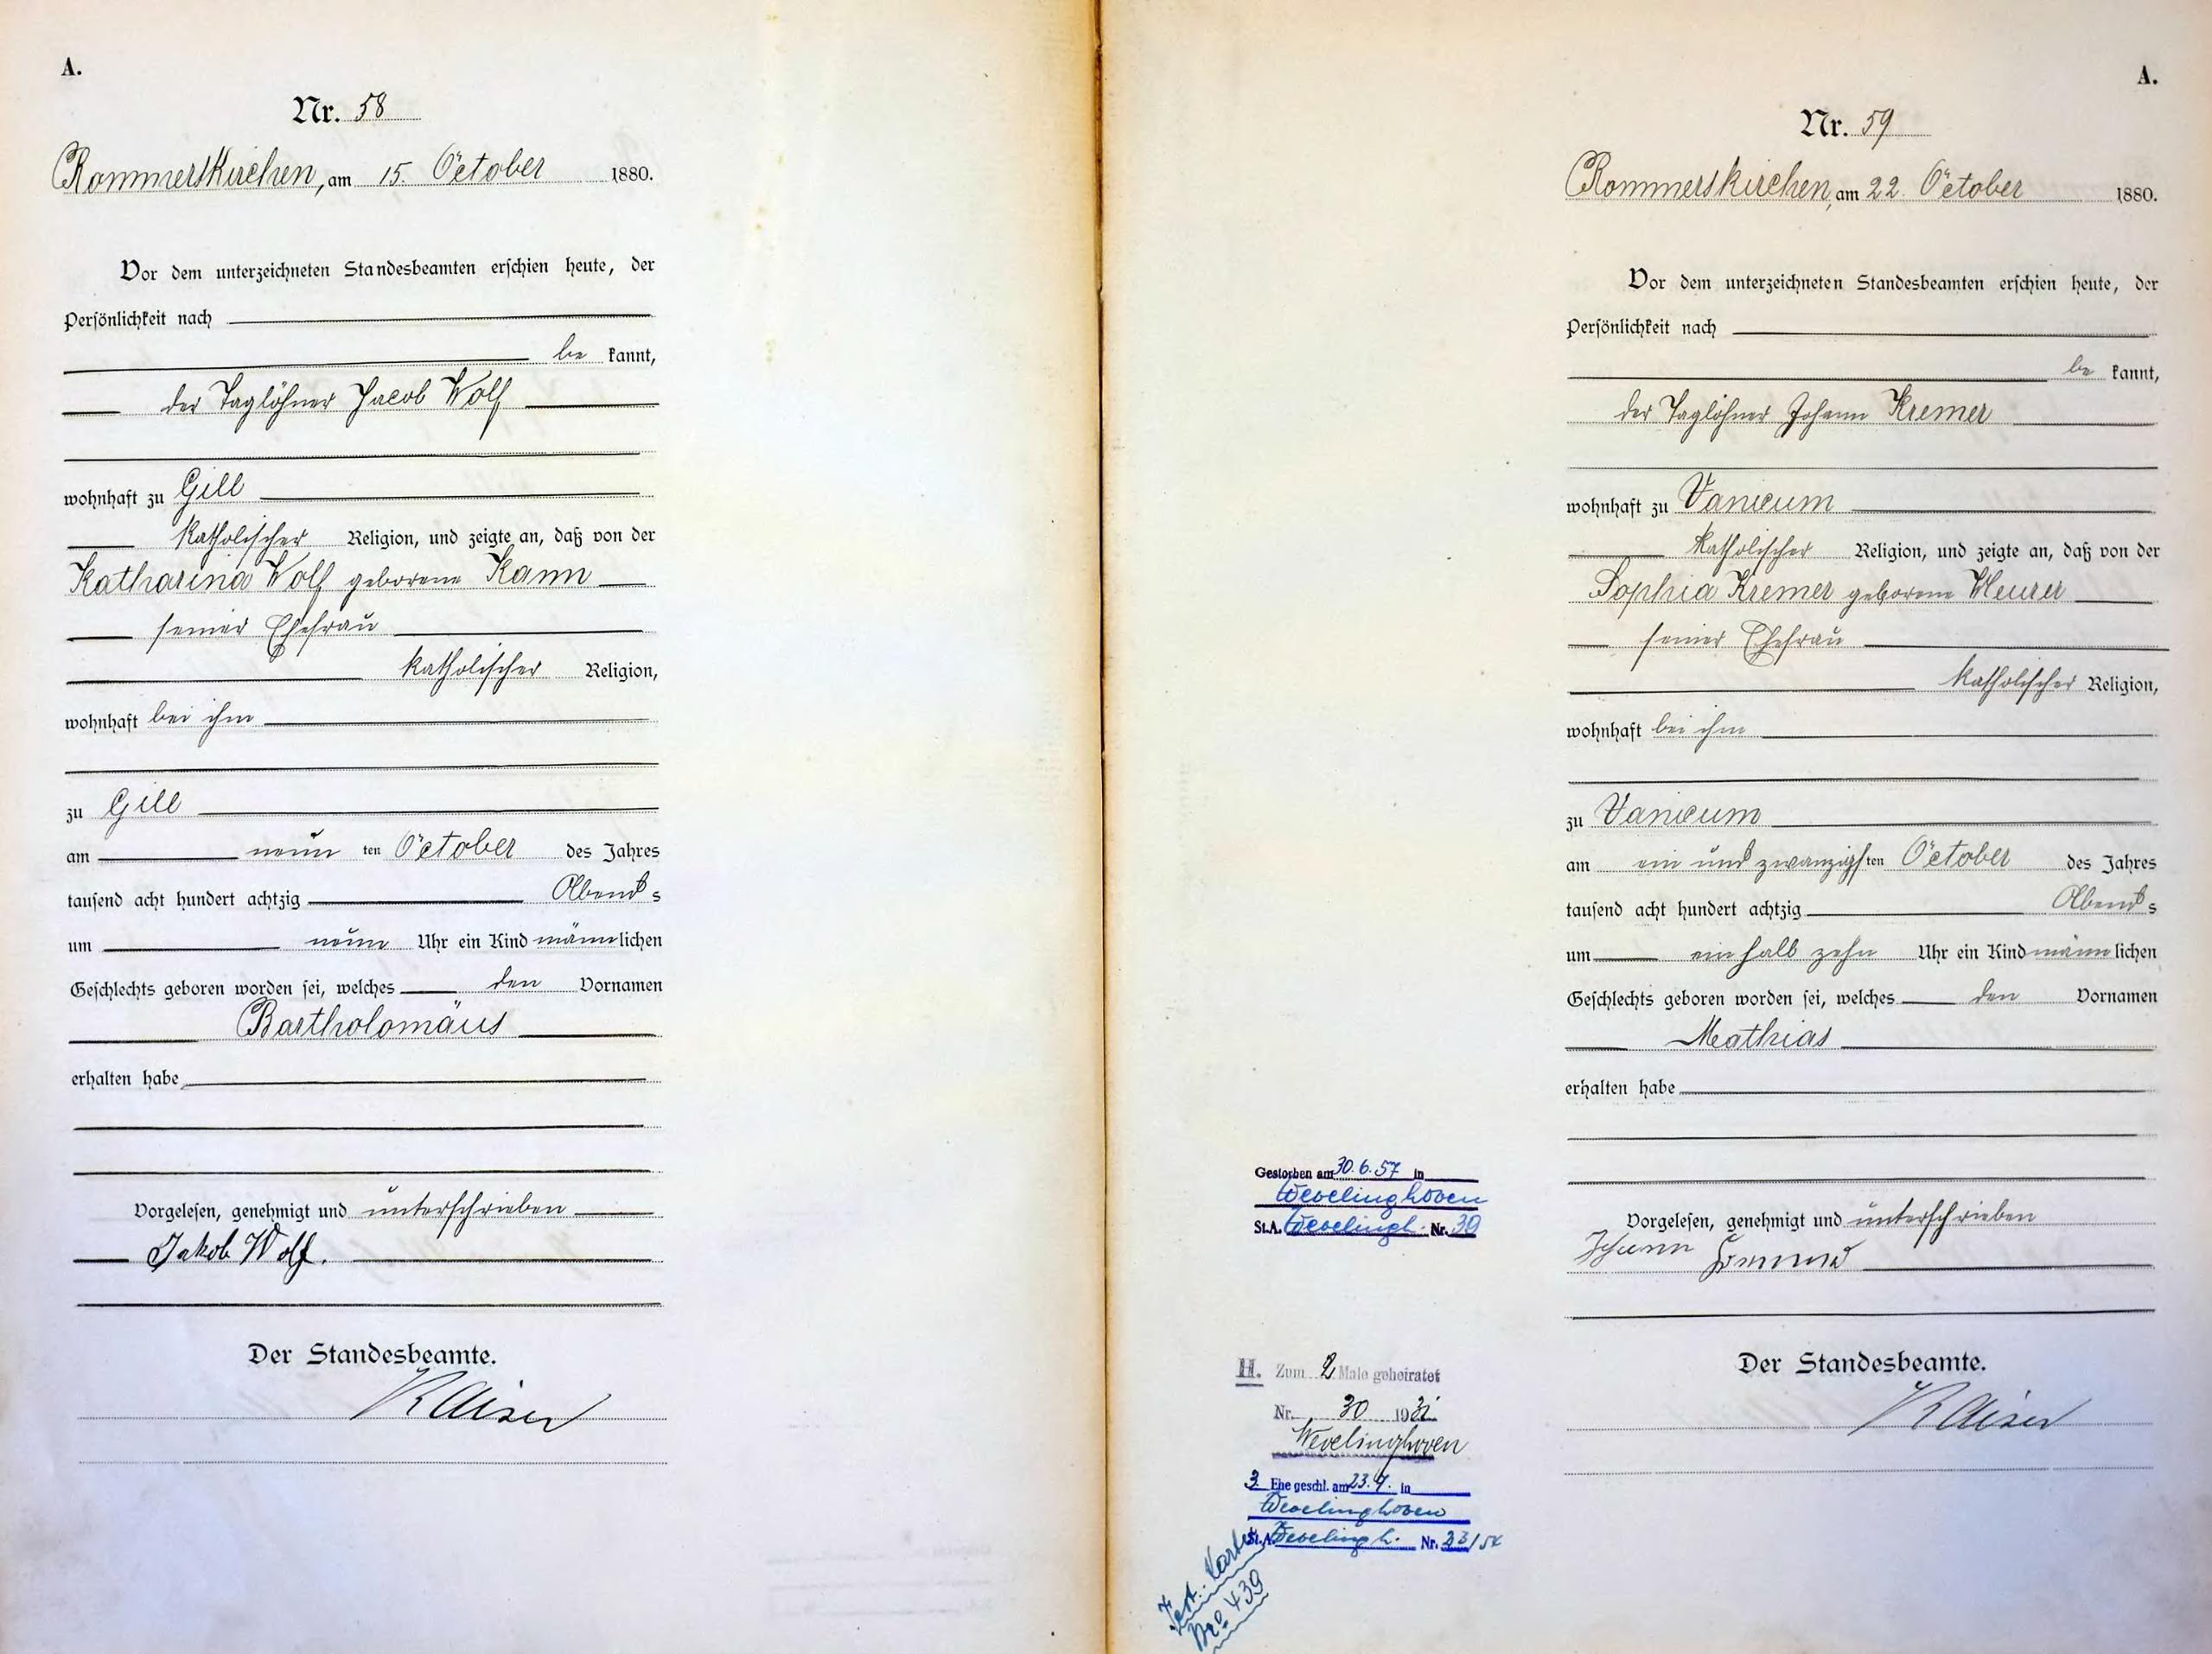 A.
Nr. 58
Rommerskirchen, am 15. October 1880.
Vor dem unterzeichneten Standesbeamten erschien heute, der
Persönlichkeit nach
be kannt,
der Taglöhner Jacob Wolf
wohnhaft zu Gill
katholischer Religion, und zeigte an, daß von der
Katharina Wolf geborene Kann
seiner Ehefrau
katholischer Religion,
wohnhaft bei ihm
zu Gill
am neun ten October des Jahres
tausend acht hundert achtzig Abends
um neun Uhr ein Kind männlichen
Geschlechts geboren worden sei, welches den Vornamen
Bartholomäus
erhalten habe
Vorgelesen, genehmigt und unterschrieben
Jakob Wolf.
Der Standesbeamte.
Kaiser
A.
Nr. 59
Rommerskirchen, am 22. October 1880.
Vor dem unterzeichneten Standesbeamten erschien heute, der
Persönlichkeit nach
be kannt,
der Taglöhner Johann Kremer
wohnhaft zu Vanicum
katholischer Religion, und zeigte an, daß von der
Sophia Kremer geborene Meurer
seiner Ehefrau
katholischer Religion,
wohnhaft bei ihm
zu Vanicum
am ein und zwanzigsten October des Jahres
tausend acht hundert achtzig Abends
um ein halb zehn Uhr ein Kind männlichen
Geschlechts geboren worden sei, welches den Vornamen
Mathias
erhalten habe
Vorgelesen, genehmigt und unterschrieben
Johann
Der Standesbeamte.
Kaiser
Gestorben am 30.6.57 in
Wevelinghoven
St.A. Wevelingh. Nr. 39
H. Zum 2 Male geheiratet
Nr. 30 1931
Wevelinghoven
3. Ehe geschl. am 23.7. in
Wevelinghoven
St.A. Wevelingh. Nr. 23/54
Test. Karte
Nro 439